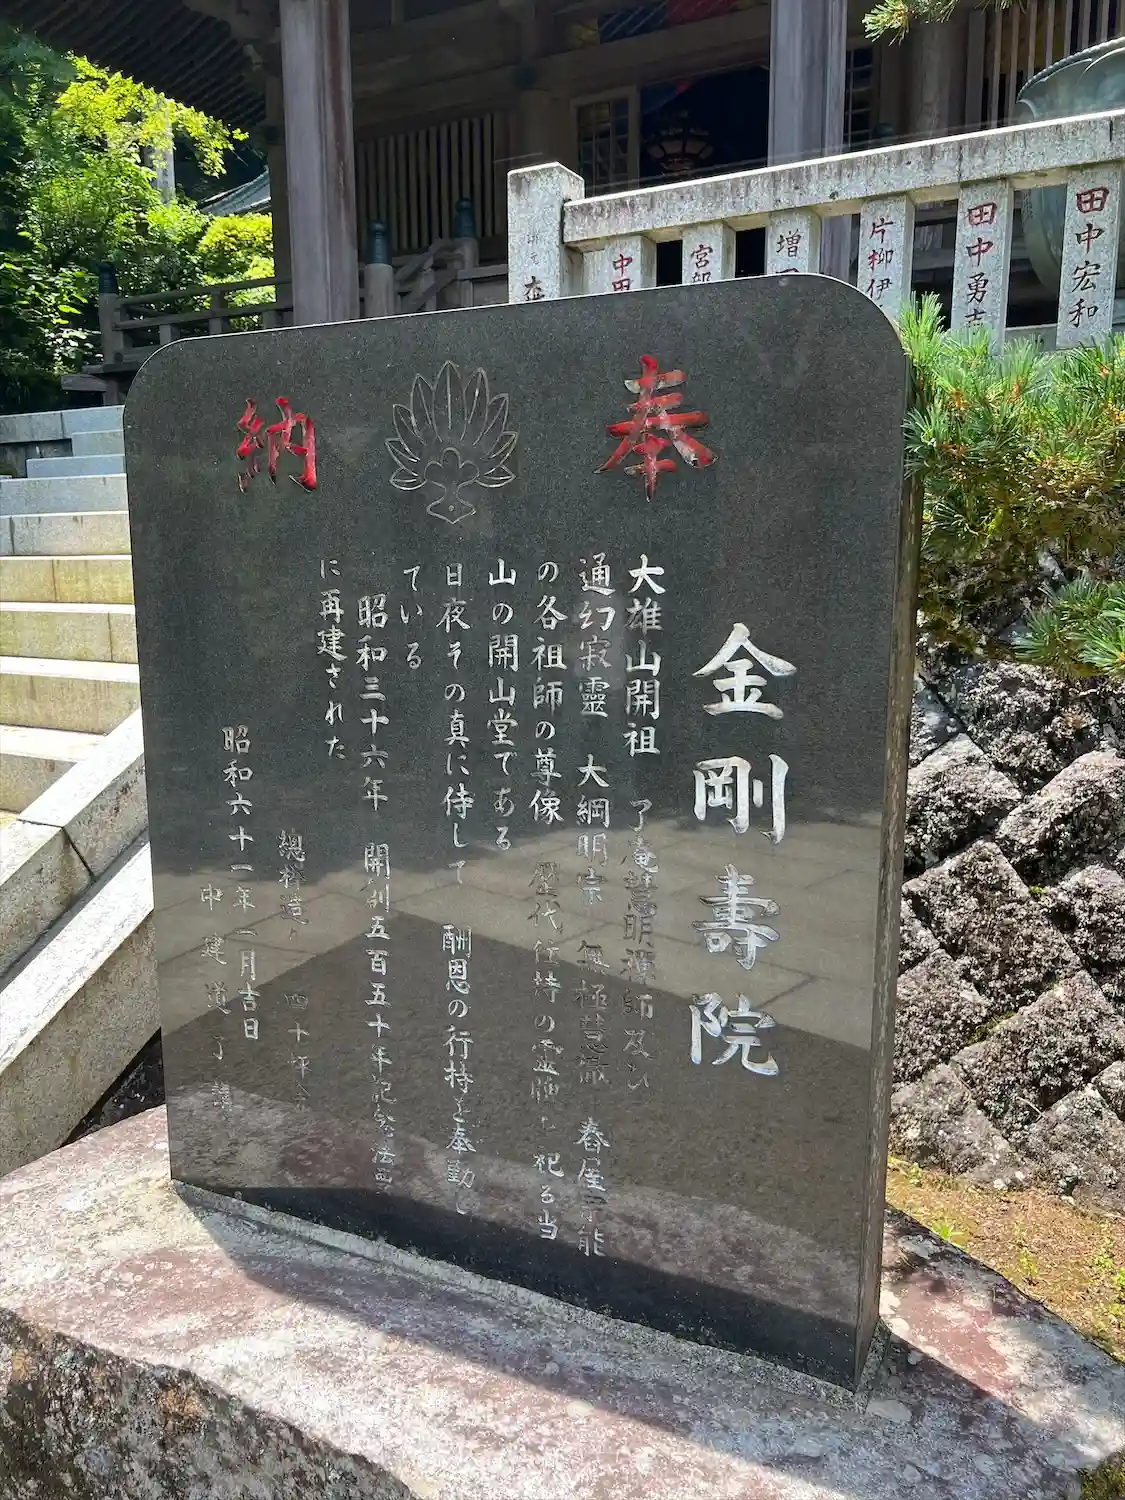 奉納
金剛壽院
大雄山開祖 了庵慧明禅師及び
通幻寂靈 大綱明宗 無極慧徹 春屋宗能
の各祖師の尊像 歴代住持の霊牌を祀る当
山の開山堂である
日夜その真に侍して 酬恩の行持を奉勤し
ている
昭和三十六年 開創五百五十年記念法
に再建された
昭和六十一年 一月吉日
田中宏和
田中勇吉
片柳伊
増
宮部
中田